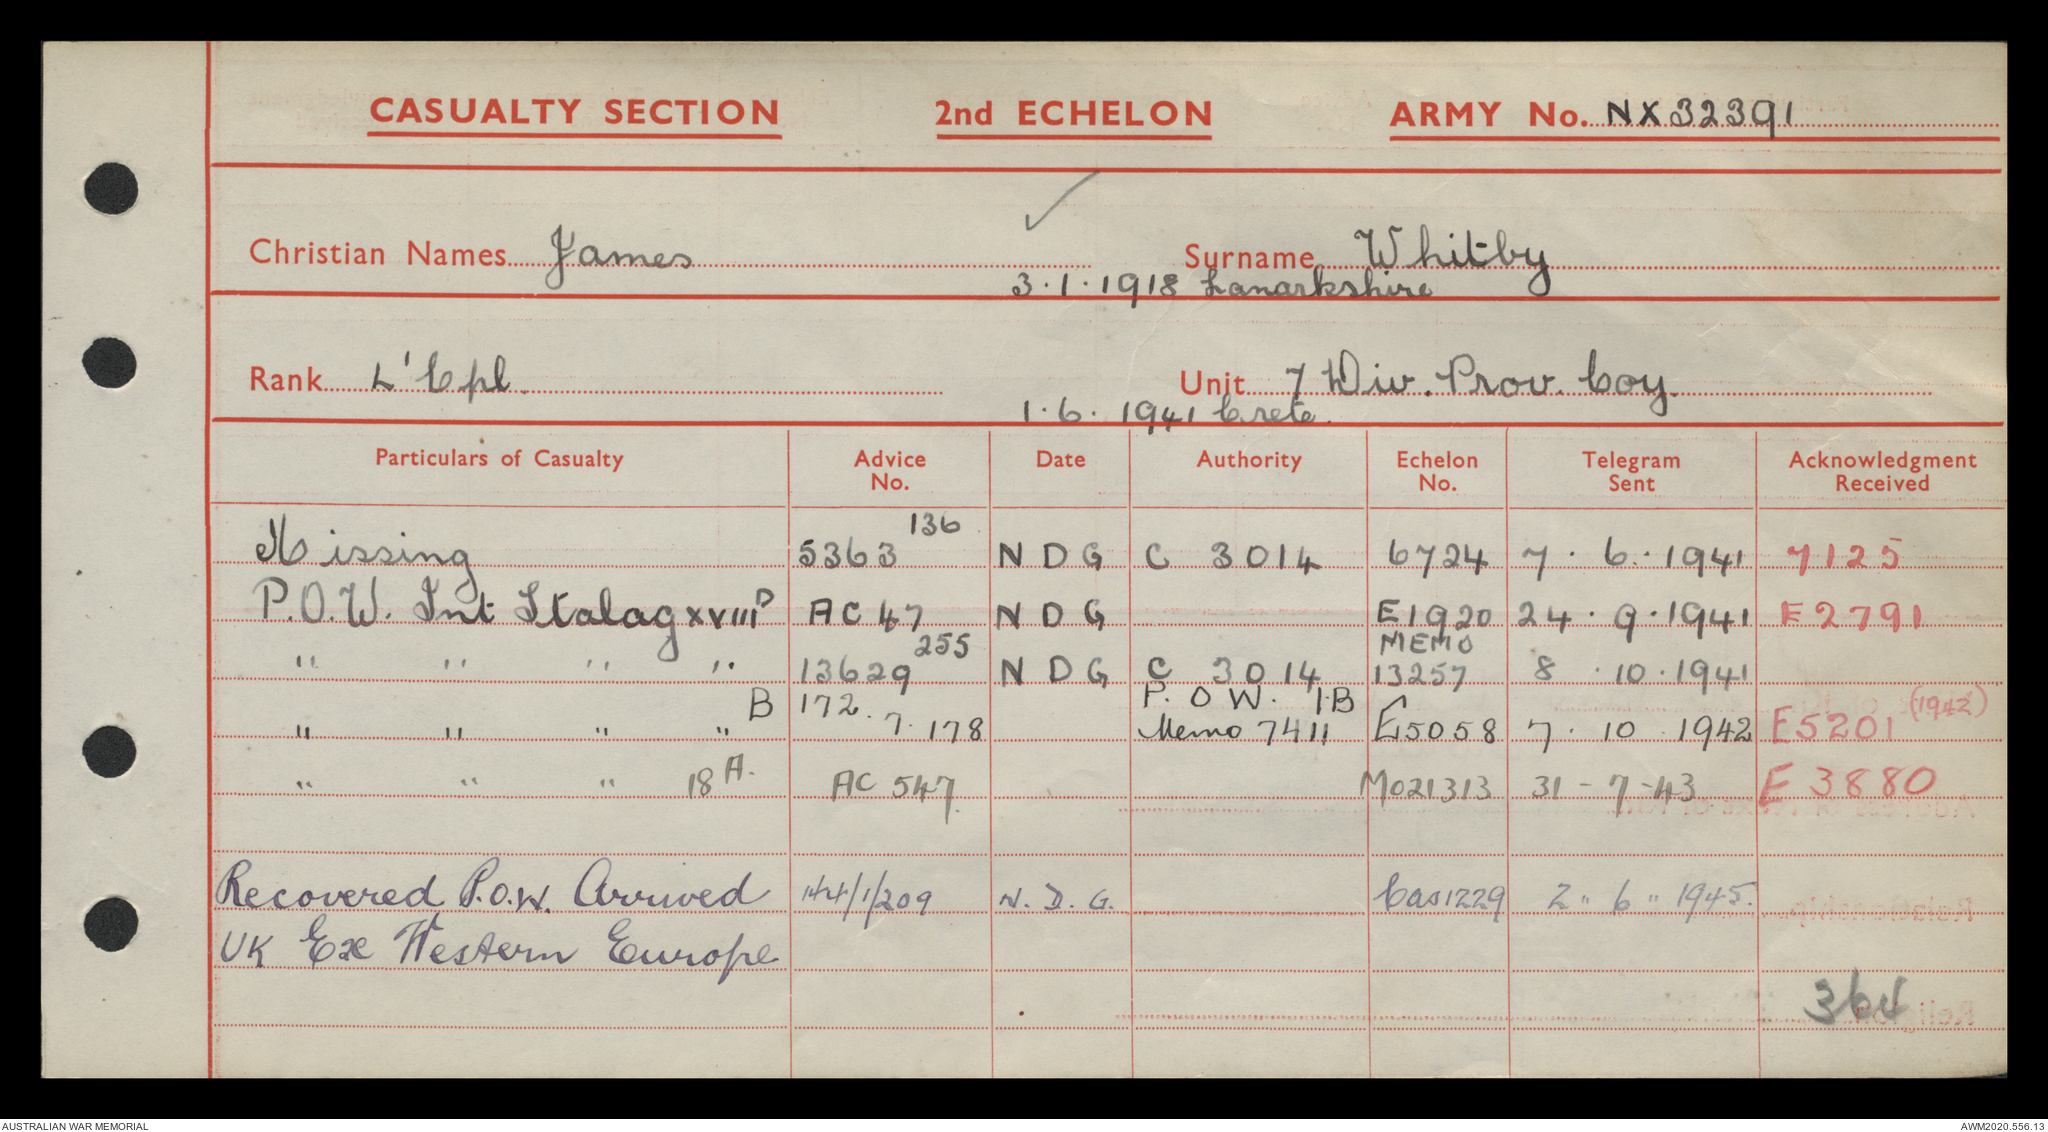 CASUALTY SECTION 2nd ECHELON ARMY No. NX32391
Christian Names James Surname Whitby
3.1.1918 Lanarkshire
Rank L'Cpl Unit 7 Div. Prov. Coy.
1.6.1941 Crete.
Particulars of Casualty Advice No. Date Authority Echelon No. Telegram Sent Acknowledgment Received
Missing 5363 136 N D G C 3014 6724 7.6.1941 7125
P.O.W. Int Stalag XVIII D AC 47 N D G E1920 24.9.1941 E2791
" " " " 13629 255 N D G C 3014 MEMO 13257 8.10.1941
" " " " B 172.7.178 P.O.W. 1B Memo 7411 E5058 7.10.1942 E5201 (1942)
" " " 18 A. AC 547 M021313 31-7-43 E3880
Recovered P.O.W. Arrived 144/1/209 N.D.G. Cas1229 2"6"1945.
UK Ex Western Europe
364
AUSTRALIAN WAR MEMORIAL AWM2020.556.13